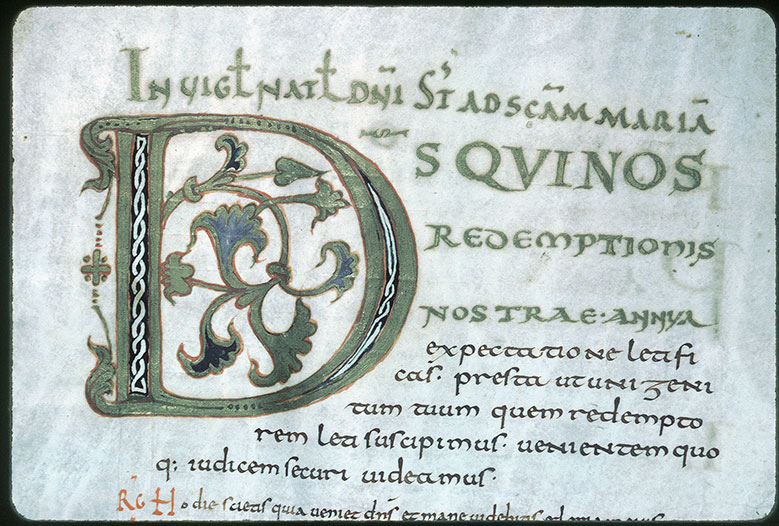 IN VIGŁ NATŁ DÑI ST̄ AD SCĀM MARIĀ
D̄S QVI NOS
REDEMPTIONIS
NOSTRAE· ANNVA
expectatione letifi
cas. presta ut unigeni
tum tuum quem redempto
rem leti suscipimus. uenientem quo
q: iudicem securi uideamus.
RG Hodie scietis quia ueniet dn̄s et mane uidebitis